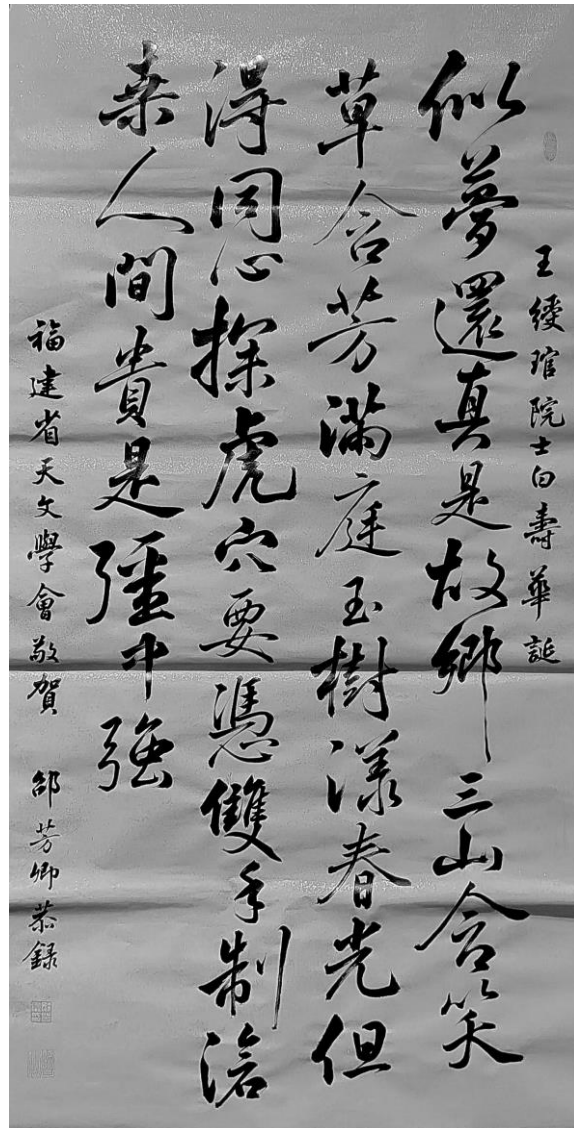 王綬琯院士白壽華誕
似夢還真是故鄉三山含笑
草含芳滿庭玉樹漾春光但
得同心探虎穴要憑雙手制滄
桒人間貴是彊中強
福建省天文學會敬賀 邵芳卿恭録